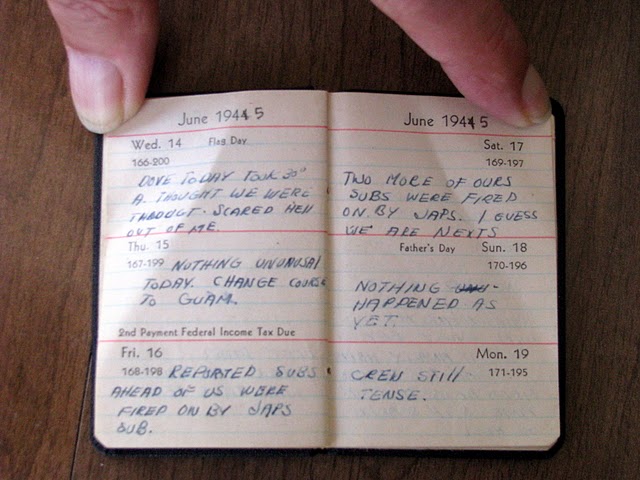 June 1944 5
Wed. 14 Flag Day
166-200
DOVE TODAY TOOK 30°
A. THOUGHT WE WERE
THROUGT. SCARED HELL
OUT OF ME.
Thu. 15
167-199 NOTHING UNUNUSAL
TODAY. CHANGE COURSE
TO GUAM.
2nd Payment Federal Income Tax Due
Fri. 16
168-198 REPORTED SUBS
AHEAD OF US WERE
FIRED ON BY JAPS
SUB.
June 1944 5
Sat. 17
169-197
TWO MORE OF OURS
SUBS WERE FIRED
ON BY JAPS. I GUESS
WE ARE NEXTS
Father's Day Sun. 18
170-196
NOTHING UNU-
HAPPENED AS
YET.
Mon. 19
171-195
CREW STILL
TENSE.